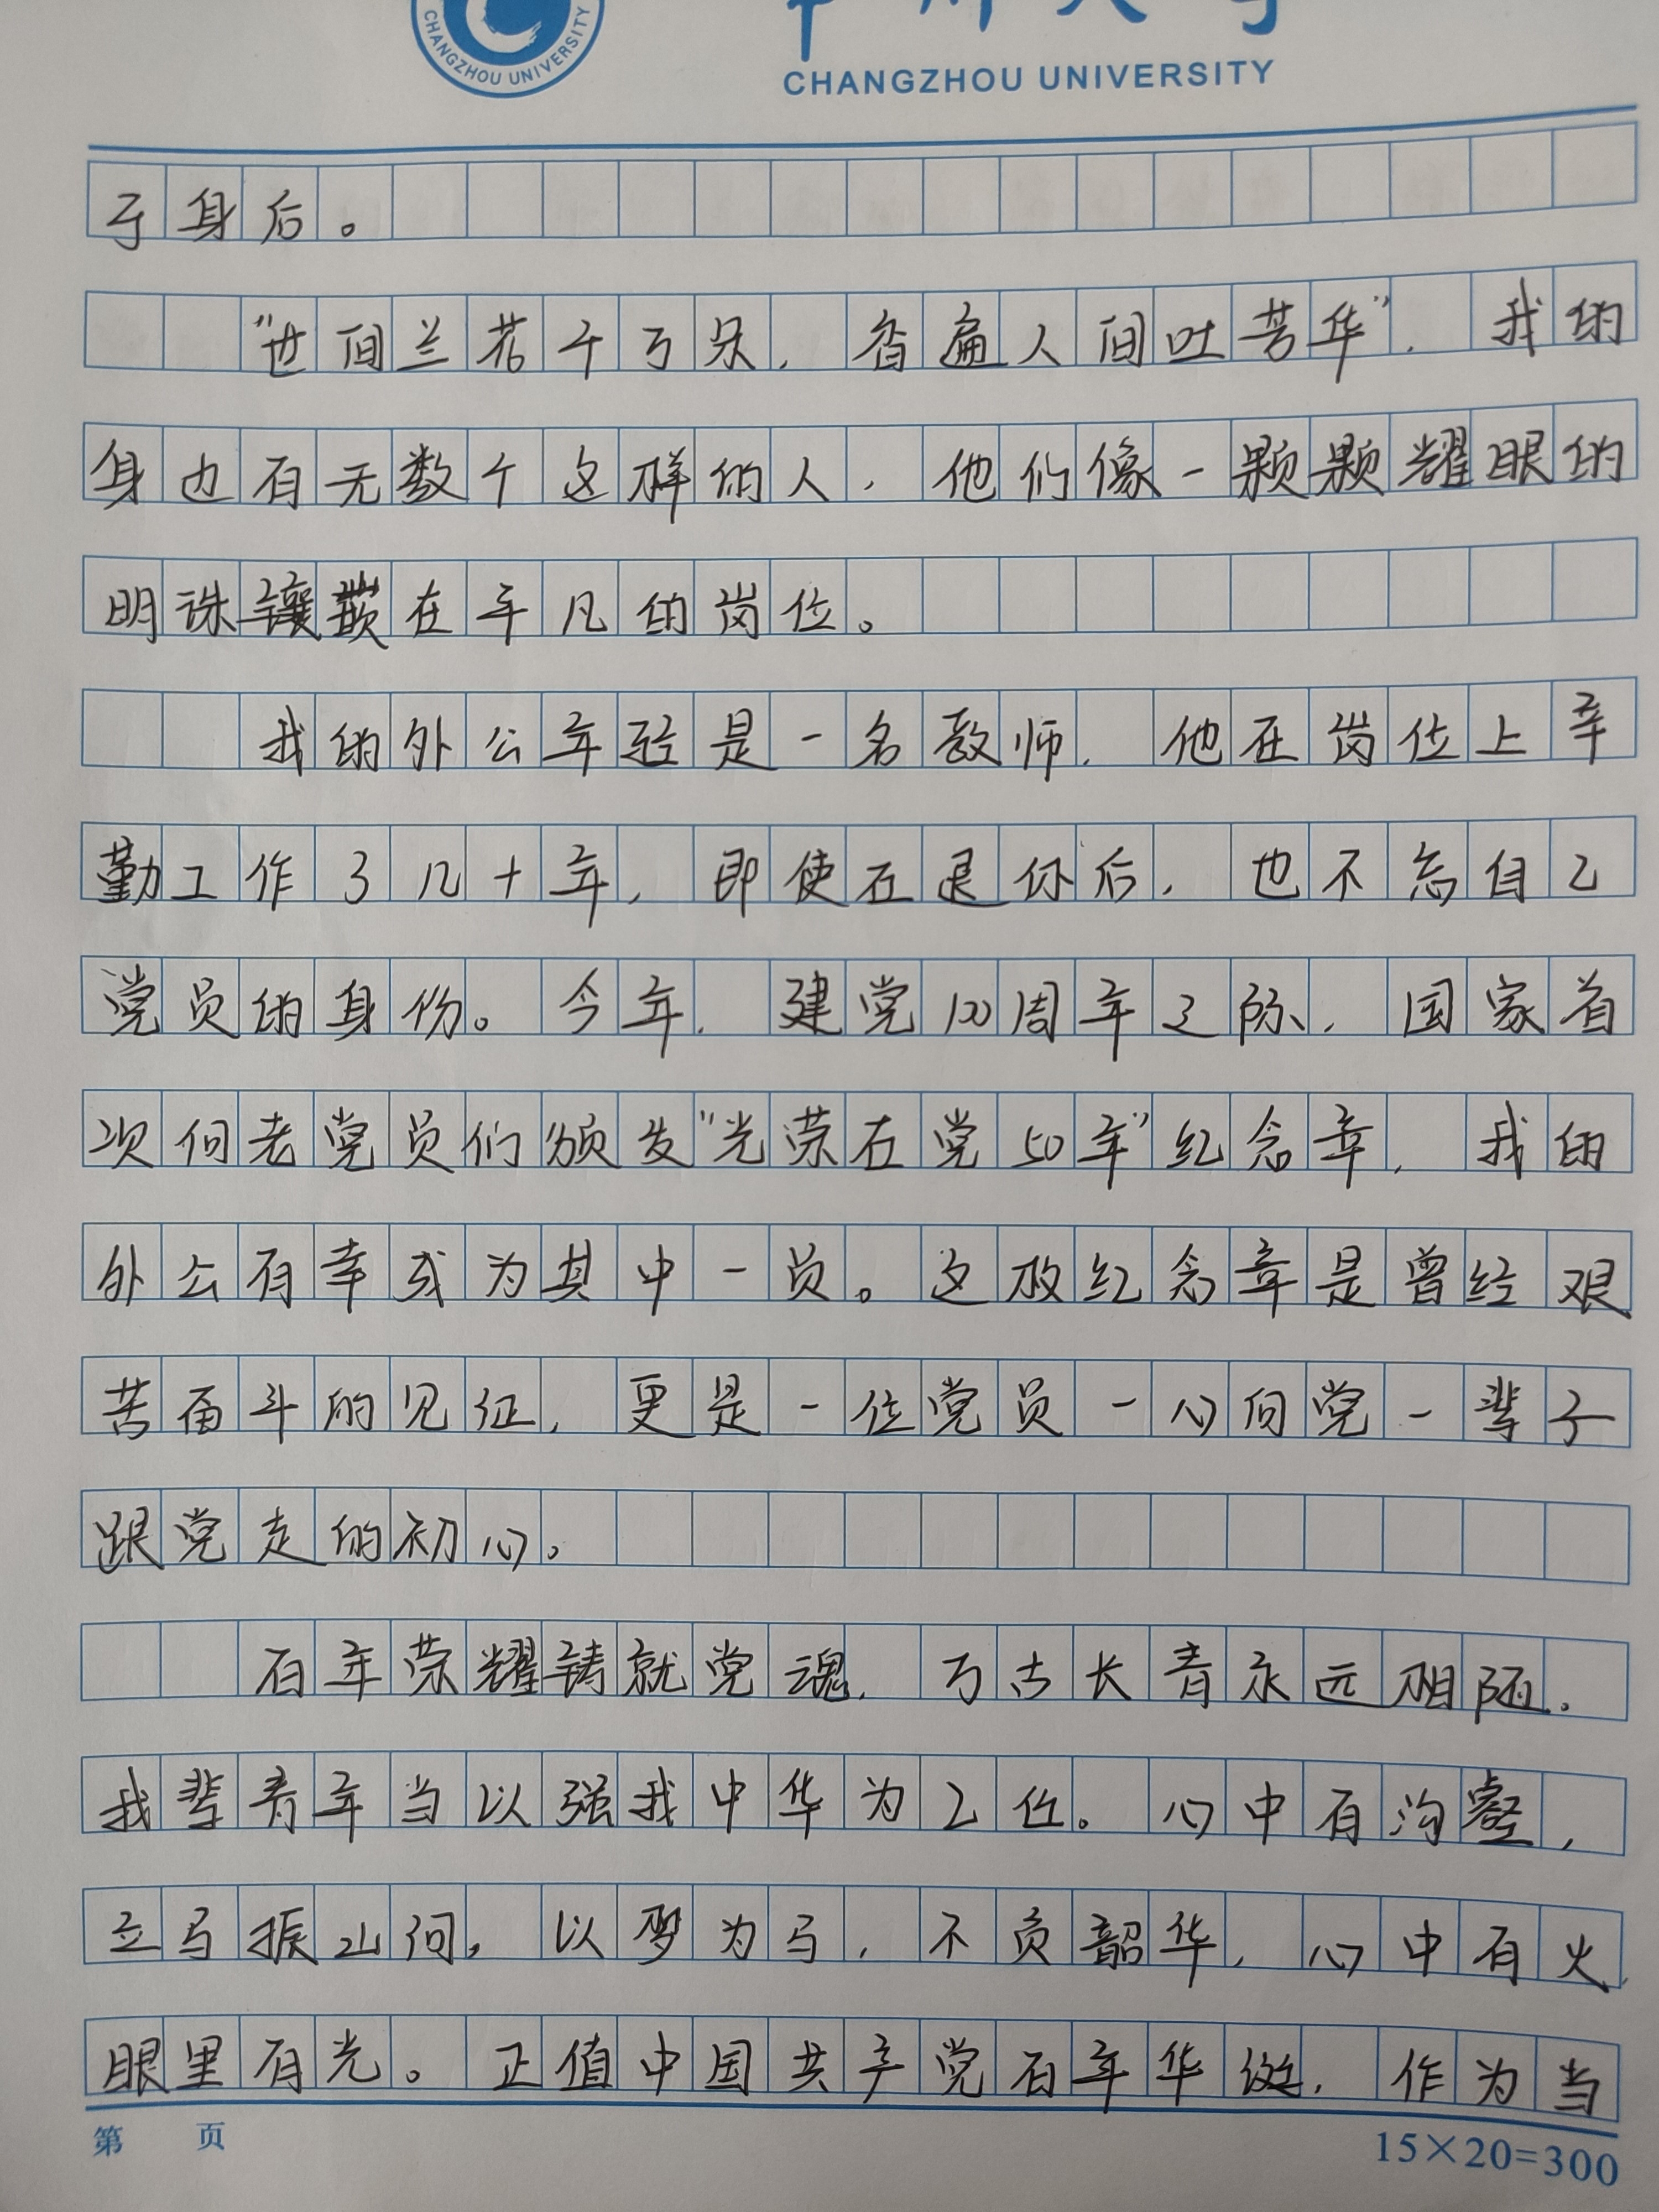 CHANGZHOU UNIVERSITY
CHANGZHOU UNIVERSITY
于身后。
“世间兰花千万朵，香遍人间吐芳华”，我的
身边有无数个这样的人，他们像一颗颗耀眼的
明珠镶嵌在平凡的岗位。
我的外公年轻是一名教师，他在岗位上辛
勤工作了几十年，即使在退休后，也不忘自己
党员的身份。今年，建党100周年之际，国家首
次向老党员们颁发“光荣在党50年”纪念章，我的
外公有幸成为其中一员。这枚纪念章是曾经艰
苦奋斗的见证，更是一位党员一心向党一辈子
跟党走的初心。
百年荣耀铸就党魂，万古长青永远相随。
我辈青年当以强我中华为己任。心中有沟壑，
立马振山河，以梦为马，不负韶华，心中有火，
眼里有光。正值中国共产党百年华诞，作为当
第 页
15×20=300